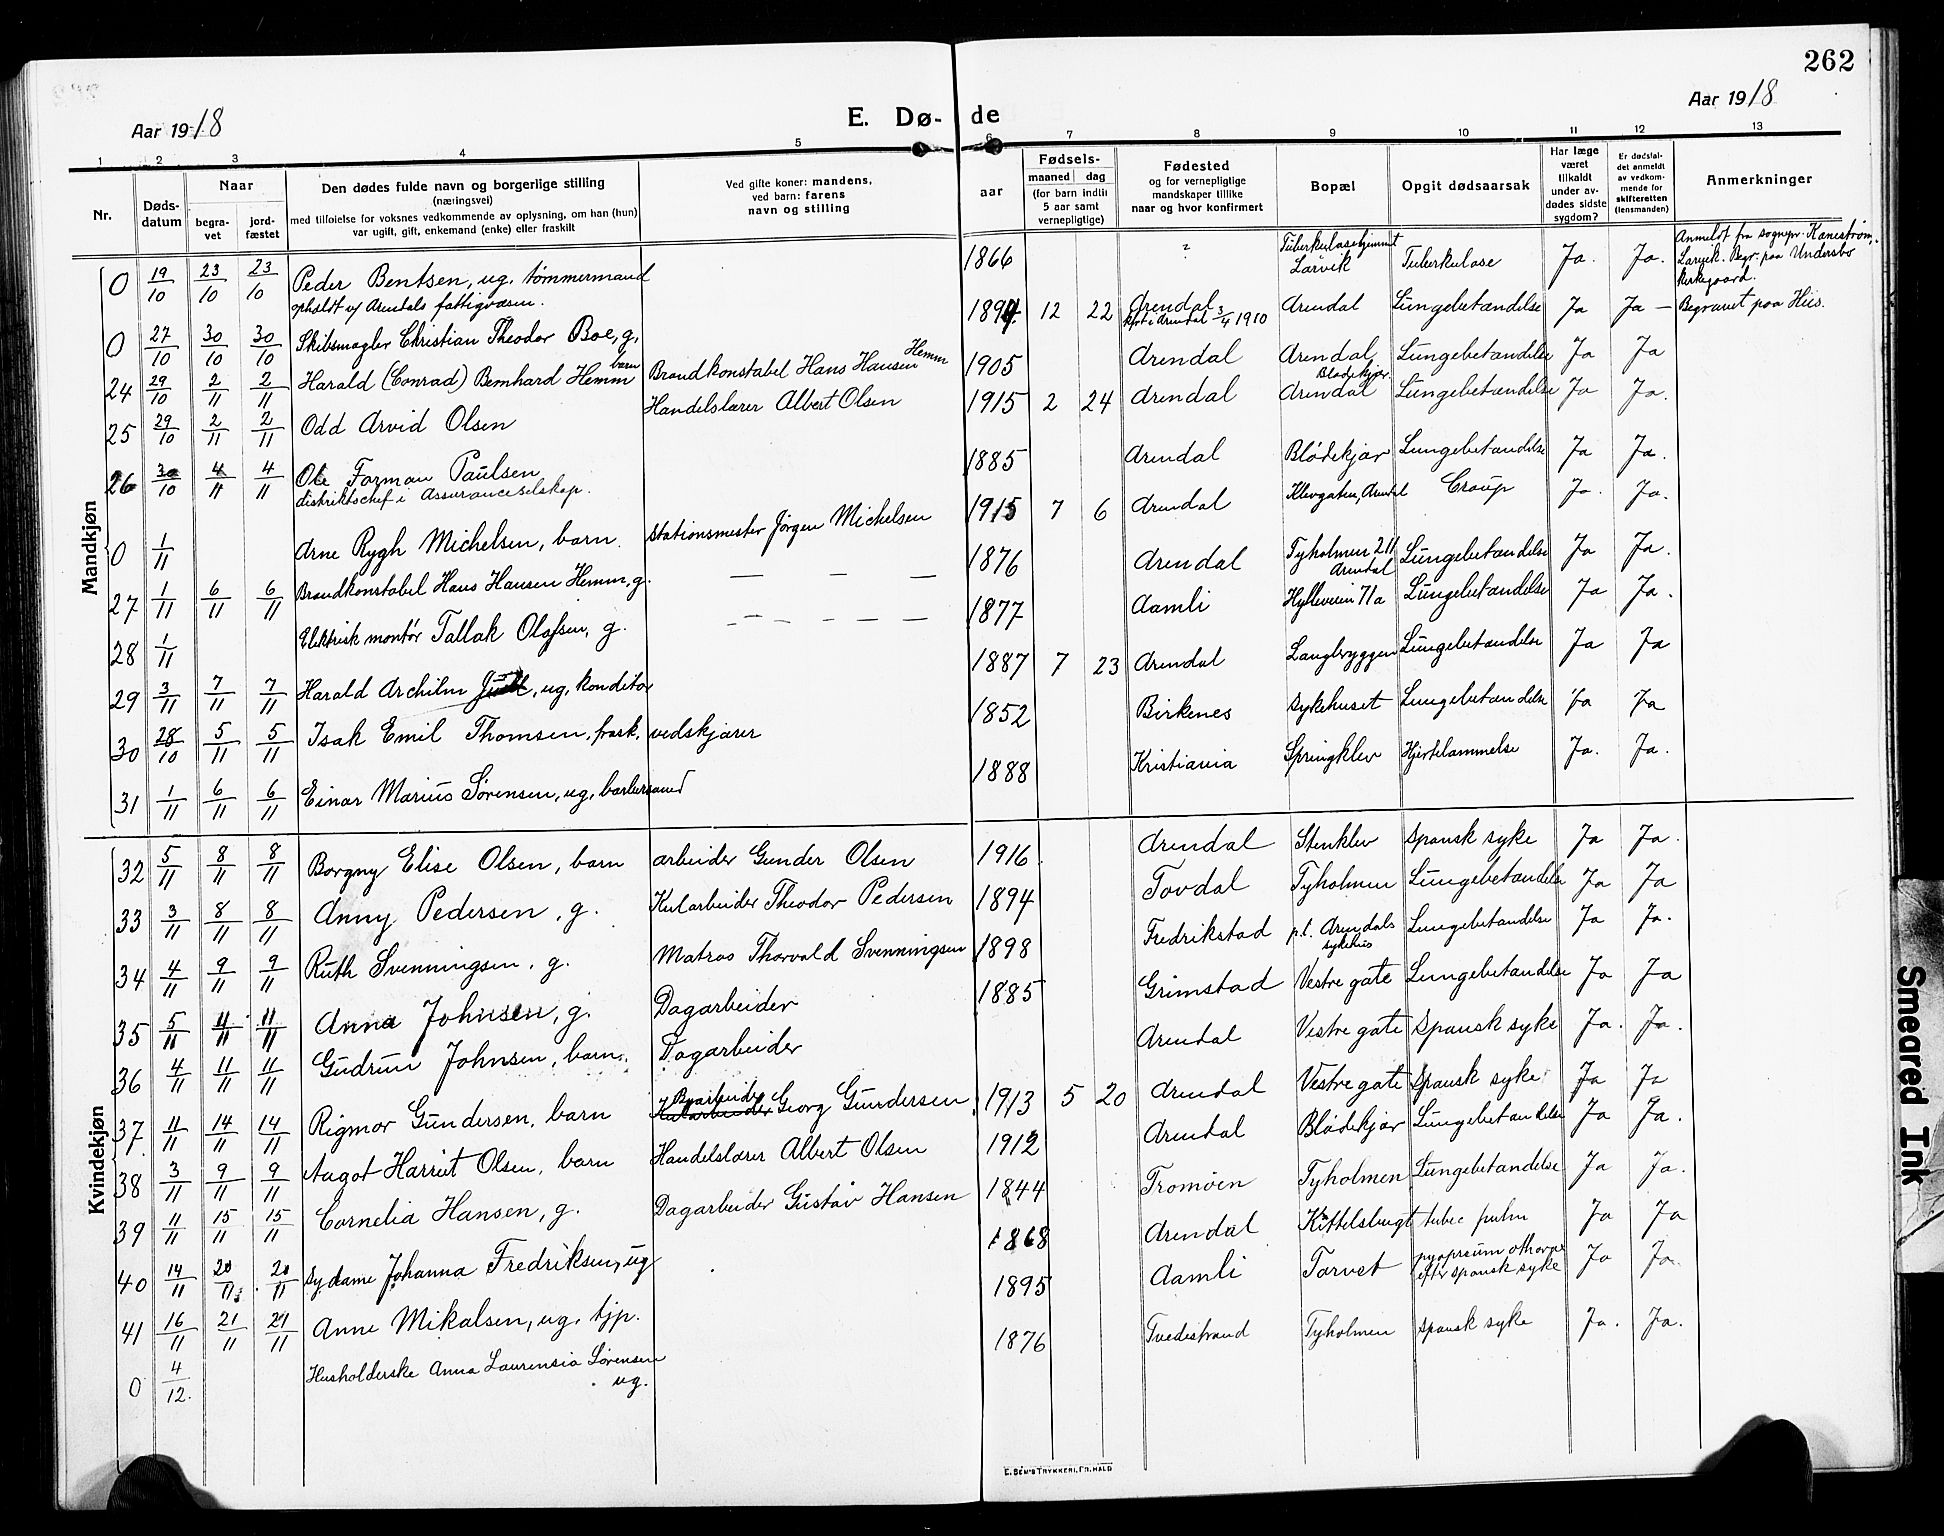 262
Aar 1918
E. Dø- de
Aar 1918
1 2 3 4 5 6 7 8 9 10 11 12 13
Nr.
Døds-datum
Naar
begra-vet
jord-fæstet
Den dødes fulde navn og borgerlige stilling
(næringsvei)
med tilføielse for voksnes vedkommende av oplysning, om han (hun)
var ugift, gift, enkemand (enke) eller fraskilt
Ved gifte koner: mandens,
ved barn: farens
navn og stilling
aar
Fødsels-
maaned dag
(for barn indtil
5 aar samt
vernepligtige)
Fødested
og for vernepligtige
mandskaper tillike
naar og hvor konfirmert
Bopæl
Opgit dødsaarsak
Har læge
været
tilkaldt
under av-
dødes sidste
sygdom?
Er dødsfal-
det anmeldt
av vedkom-
mende for
skifteretten
(lensmanden)
Anmerkninger
Mandkjøn
0 19/10 23/10 23/10 Peder Bentsen, ug. tømmermand opholdt v/ Arendals fattigvæsen. 1866 ? Tuberkulosehjemmet Larvik Tuberkulose Ja. Ja. Anmeldt fra sognepr. Kanestrøm, Larvik. Begr. paa Undersbo kirkegaard.
0 27/10 30/10 30/10 Skibsmægler Christian Theodor Boe, g. 1894 12 22 Arendal kft i Arendal 3/4 1910 Arendal Lungebetændelse Ja Ja — Begravet paa His.
24 29/10 2/11 2/11 Harald (Conrad) Bernhard Hemm barn Brandkonstabel Hans Hansen Hemm 1905 Arendal Arendal Blødekjær Lungebetændelse Ja Ja
25 29/10 2/11 2/11 Odd Arvid Olsen Handelslærer Albert Olsen 1915 2 24 Arendal Arendal Lungebetændelse Ja Ja.
26 30/10 4/11 4/11 Ole Forman Paulsen distriktschef i Assuranceselskap. 1885 Arendal Blødekjær Lungebetændelse Ja Ja.
0 1/11 Arne Rygh Michelsen, barn. Stationsmester Jørgen Michelsen 1915 7 6 Arendal Klevgaten, Arendal Croup Ja. Ja.
27 1/11 6/11 6/11 Brandkonstabel Hans Hansen Hemm, g. — — — 1876 Arendal Tyholmen 211 Arendal Lungebetændelse Ja Ja.
28 1/11 Elektrisk montør Tallak Olafsen, g. — — — — — 1877 Aamli Hylleveien 71a Lungebetændelse Ja Ja.
29 3/11 7/11 7/11 Harald Archilm Juell, ug, konditor 1887 7 23 Arendal Langbryggen Lungebetændelse Ja Ja
30 28/10 5/11 5/11 Isak Emil Thomsen, frask. vedskjærer 1852 Birkenes Sykehuset Lungebetændelse Ja Ja
31 1/11 6/11 6/11 Einar Marius Sørensen, ug, barbersvend 1888 Kristiania Springklev Hjertelammelse Ja. Ja.
Kvindekjøn
32 5/11 8/11 8/11 Borgny Elise Olsen, barn arbeider Gunder Olsen 1916 Arendal Stenklev Spansk syke Ja Ja.
33 3/11 8/11 8/11 Anny Pedersen, g. Kularbeider Theodor Pedersen 1894 Tovdal Tyholmen Lungebetændelse Ja Ja
34 4/11 9/11 9/11 Ruth Svenningsen, g. Matros Thorvald Svenningsen 1898 Fredrikstad p.t. Arendals sykehus Lungebetændelse Ja Ja.
35 5/11 11/11 11/11 Anna Johnsen, g. Dagarbeider 1885 Grimstad Vestre gate Lungebetændelse Ja Ja
36 4/11 11/11 11/11 Gudrun Johnsen, barn. Dagarbeider Arendal Vestre gate Spansk syke Ja. Ja.
37 11/11 14/11 14/11 Rigmor Gundersen, barn Byarbeider Kularbeider Georg Gundersen 1913 5 20 Arendal Vestre gate Spansk syke Ja Ja
38 3/11 9/11 9/11 Aagot Harriet Olsen, barn Handelslærer Albert Olsen 1912 Arendal Blødekjær Lungebetændelse Ja Ja.
39 11/11 15/11 15/11 Cornelia Hansen, g. Dagarbeider Gustav Hansen 1844 Tromøen Tyholmen Lungebetændelse Ja Ja.
40 14/11 20/11 20/11 Sydame Johanna Fredriksen, ug 1868 Arendal Kittelsbugt tuberc pulm Ja Ja
41 16/11 21/11 21/11 Anne Mikalsen, ug. tjp. 1895 Aamli Torvet efter spansk syke Ja Ja.
0 4/12. Husholderske Anna Laurensia Sørensen ug. 1876 Tvedestrand Tyholmen Spansk syke Ja. Ja.
E. SEM'S TRYKKERI, FR.HALD
Smeared Ink